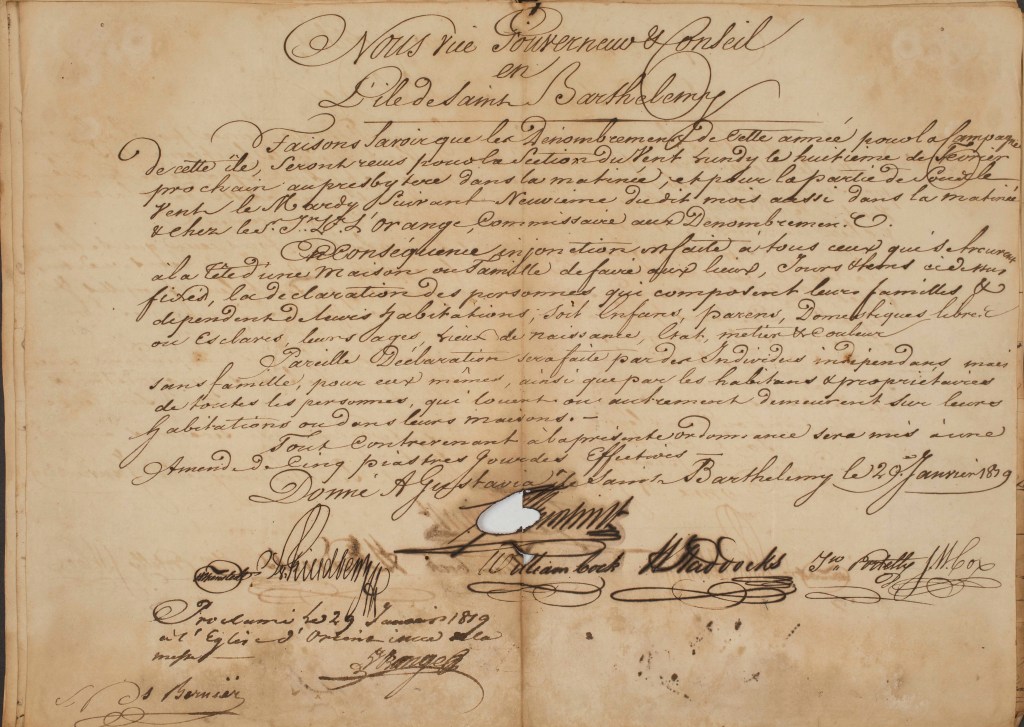 Nous vice Gouverneur & Conseil
en
L'ile de Saint Barthelemy
Faisons Savoir que les Dénombremens de Cette année pour la Campagne
de cette île, Seront reçus pour la Section du Vent Lundy le huitieme de Fevrier
prochain au presbytere dans la matinée, et pour la partie de Sous le
Vent le Mardy Suivant Neuvieme du dit mois aussi dans la matinée
& Chez le Sr. L'Orange, Commissaire aux Denombremens. &.
En Conséquence injonction est faite à tous ceux qui se trouvent
à la tête d'une Maison ou famille de faire aux lieux, Jours & tems ci dessus
fixés, la declaration des personnes qui composent leurs familles &
dependent de leurs habitations, soit Enfans, parens, Domestiques libres
ou Esclaves, leurs ages, Lieux de naissance, Etat, metier & Couleur
Pareille Déclaration sera faite par des Individus independans, mais
sans famille, pour eux mêmes, ainsi que par les habitans & propriétaires
de toutes les personnes, qui louent ou autrement demeurent sur leurs
habitations ou dans leurs maisons. -
Tout Contrevenant à la presente ordonnance sera mis à une
Amende de Cinq piastres Gourdes Effectives
Donné A Gustavia île Saint Barthelemy le 29 Janvier 1819
William Cock H Vaddocks J. W. Cox
Proclamé Le 29 Janvier 1819
à l'Eglise d' Oriént issue de la
messe
Bernier